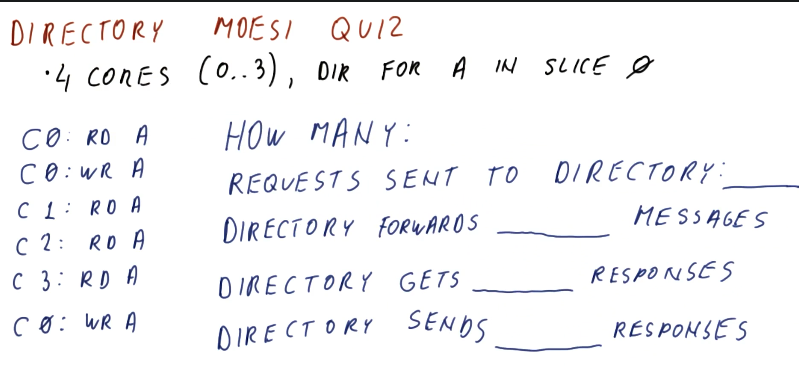 DIRECTORY MOESI QUIZ
• 4 CORES (0..3), DIR FOR A IN SLICE 0
C0: RD A
C0: WR A
C1: RD A
C2: RD A
C3: RD A
C0: WR A
HOW MANY:
REQUESTS SENT TO DIRECTORY: ______
DIRECTORY FORWARDS ______ MESSAGES
DIRECTORY GETS ______ RESPONSES
DIRECTORY SENDS ______ RESPONSES